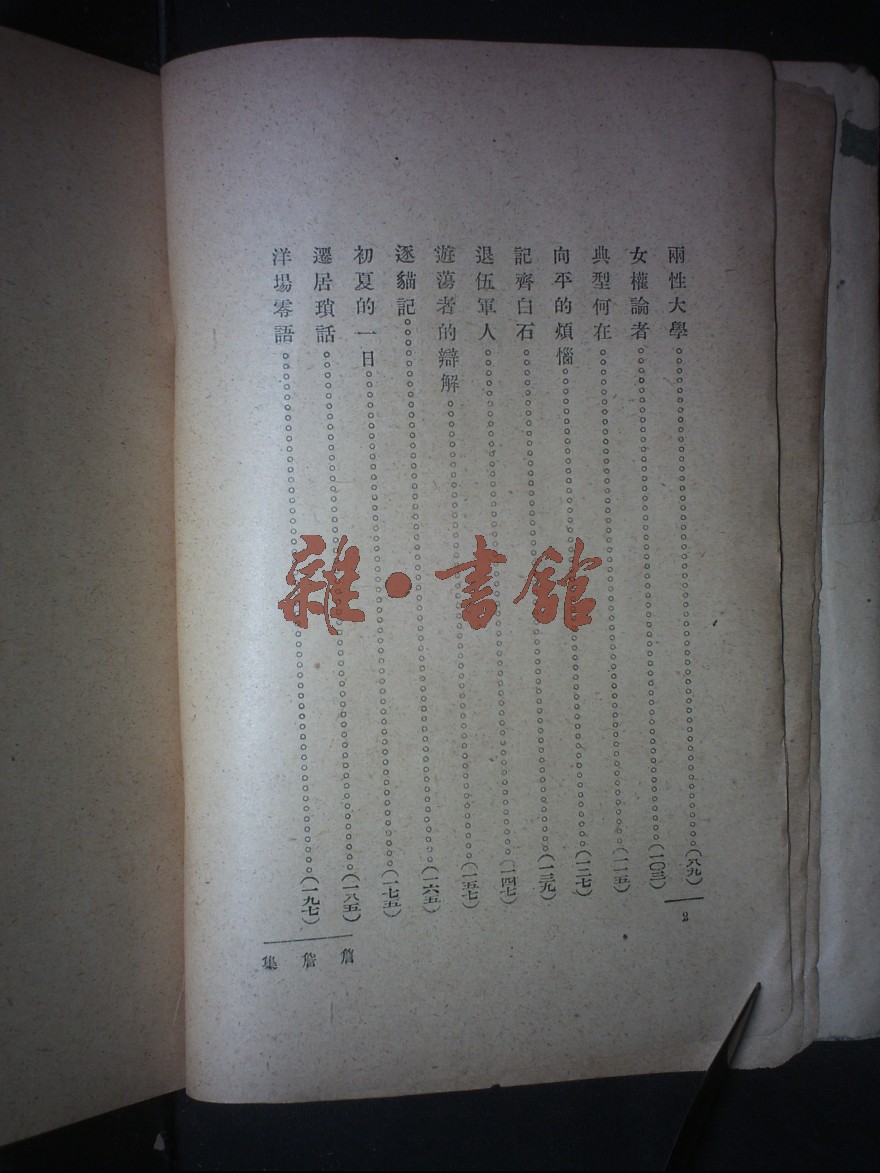 兩性大學。。。。。。。。。。。。。。。。。。。。(八九)
女權論者。。。。。。。。。。。。。。。。。。。。(一〇三)
典型何在。。。。。。。。。。。。。。。。。。。。(一一五)
向平的煩惱。。。。。。。。。。。。。。。。。。。。(一二七)
記齊白石。。。。。。。。。。。。。。。。。。。。(一三九)
退伍軍人。。。。。。。。。。。。。。。。。。。。(一四七)
遊蕩者的辯解。。。。。。。。。。。。。。。。。。。。(一五七)
逐貓記。。。。。。。。。。。。。。。。。。。。(一六五)
初夏的一日。。。。。。。。。。。。。。。。。。。。(一七五)
遷居瑣話。。。。。。。。。。。。。。。。。。。。(一八五)
洋場零語。。。。。。。。。。。。。。。。。。。。(一九七)
2
詹詹集
雜·書館